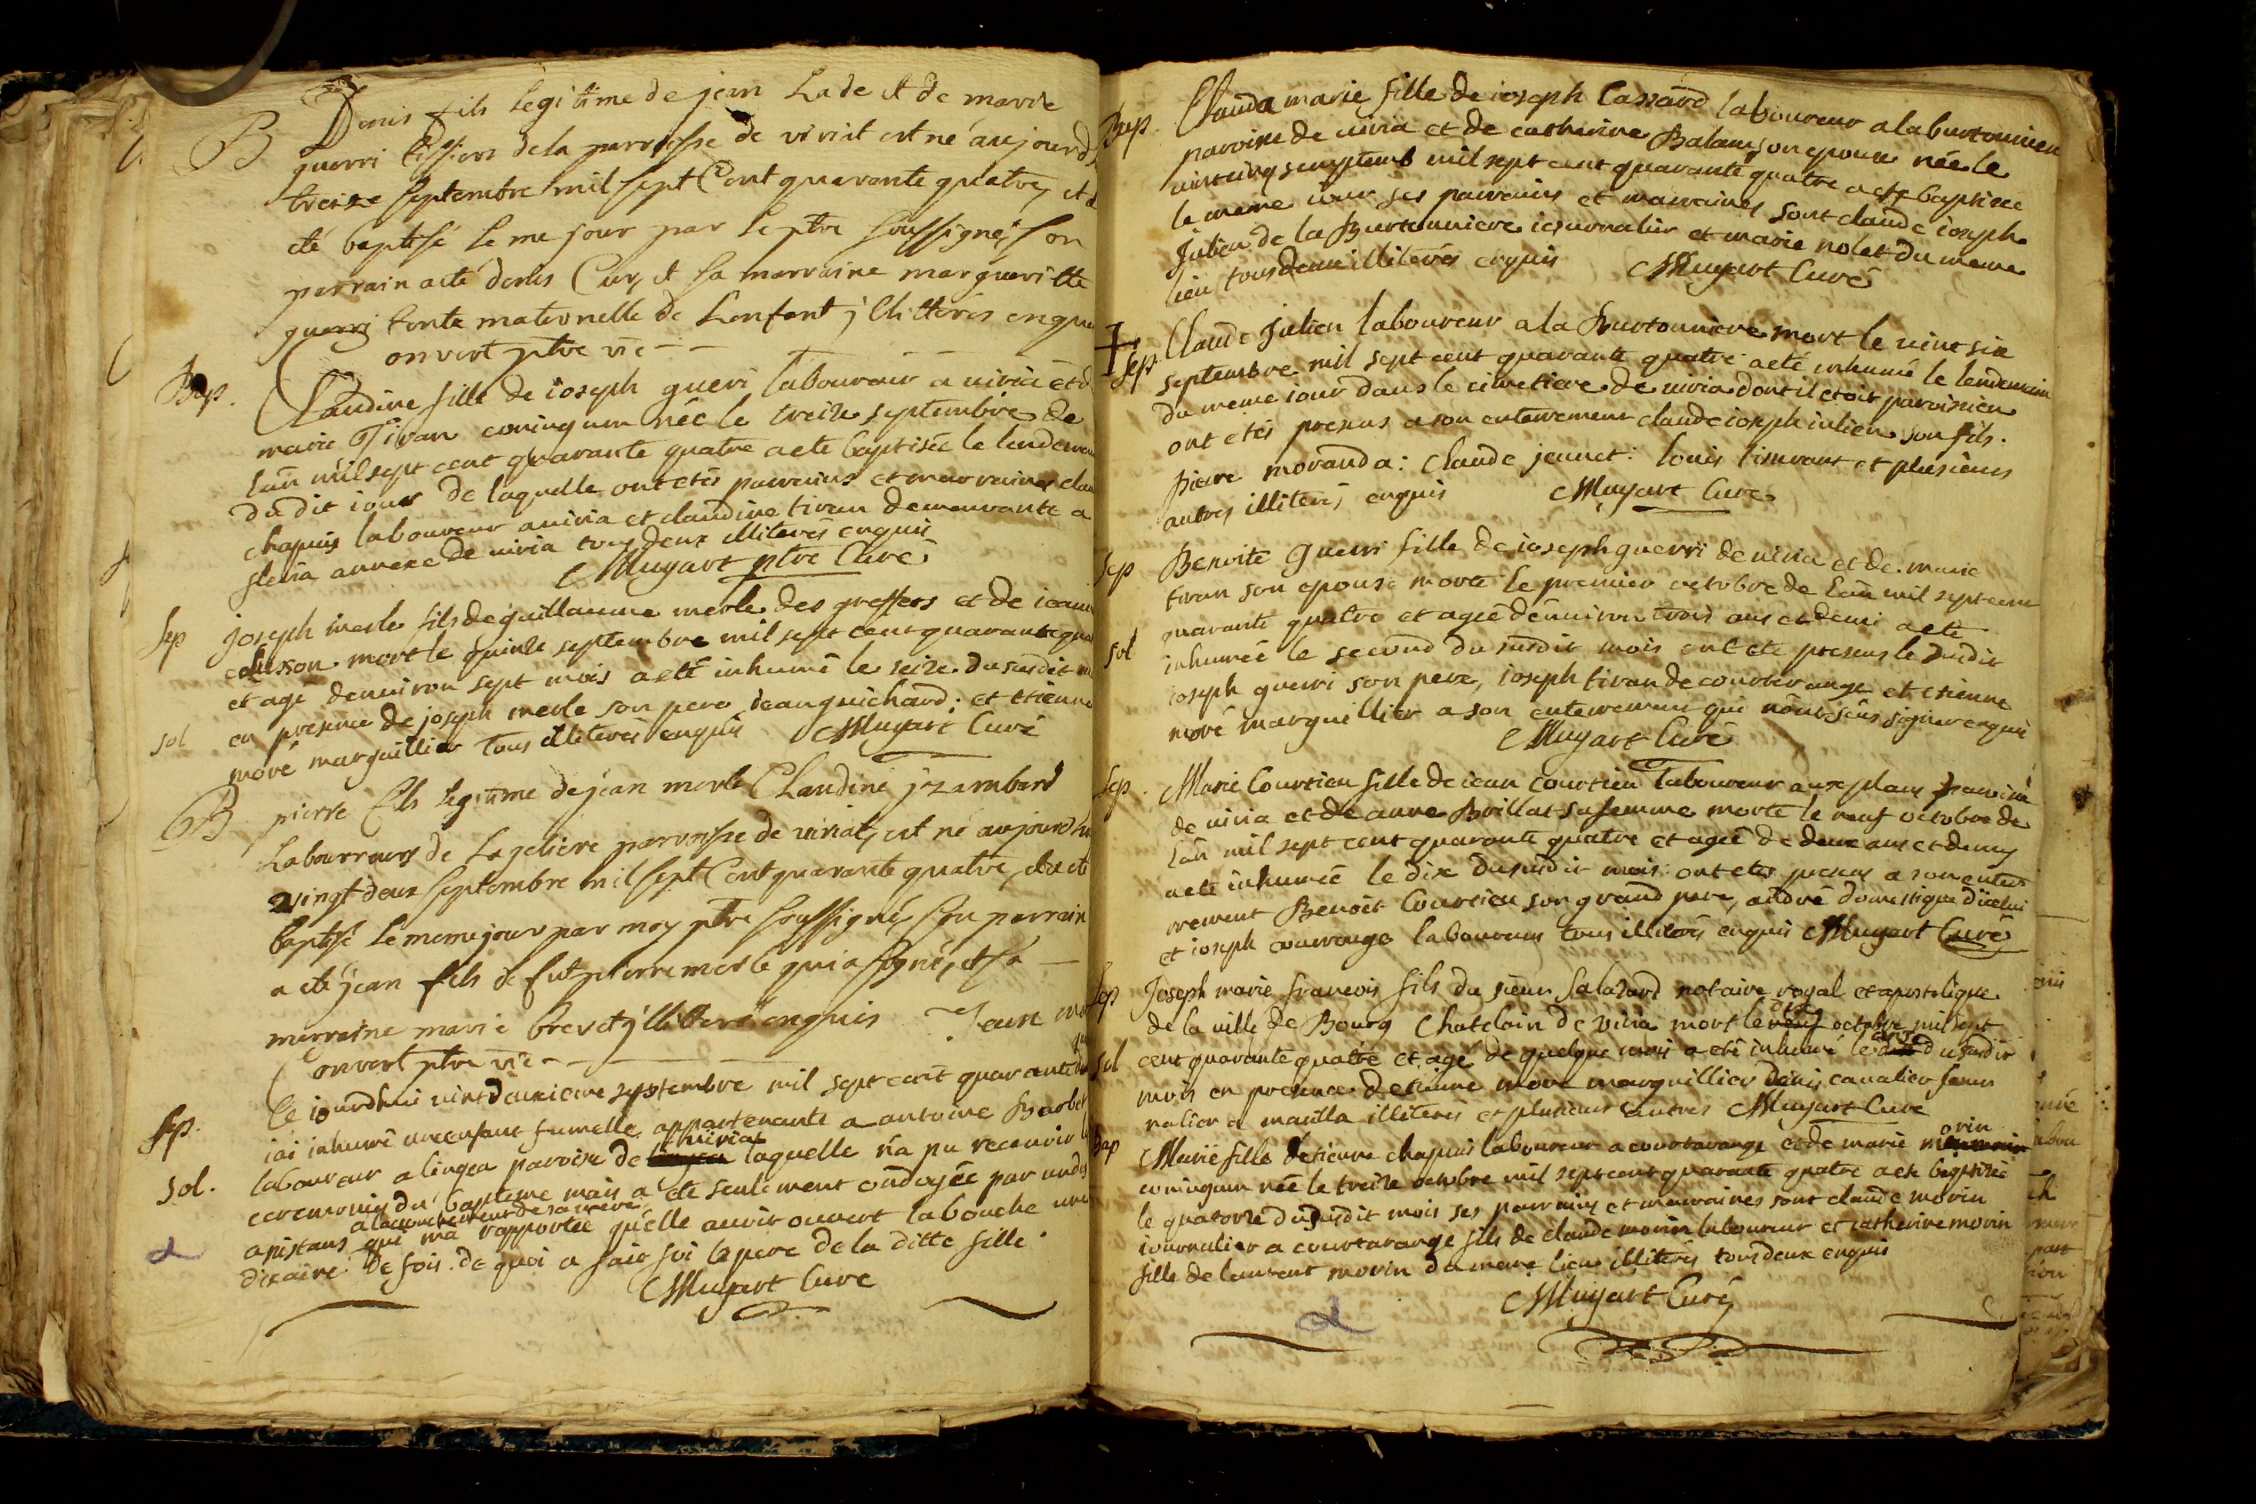 B Denis fils legitime de jean Lade et de marie
guerri tissiers de la parroisse de viriat est né aujourd
treize septembre mil sept Cent quarante quatre, et a
été baptisé le me jour par le ptre soussigné, son
parrain a eté denis Cur, et sa marraine margueritte
guerri tante maternelle de L'enfant, illittérés enquis
onvert ptre vic
Bap. Claudine fille de ioseph gueri laboureur a viria et d
marie Tivan coniugum née le treize septembre de
lan mil sept cent quarante quatre a eté baptisée le lendemain
du dit iour de laquelle ont etés parrains et marraines clau
chapuis laboureur a viria et claudine tivan demeurante a
fleria annexe de viria tous deux illiterés enquis
Muyart ptre Curé
sep joseph merle fils de guillaume merle des greffets et de ieanne
mort le quinze septembre mil sept cent quarante qua
et agé denuiron sept mois a eté inhumé le seize du susdit m
sol en presence de joseph merle son pere, iean guichard; et etienne
moré marguillier tous illiterés enquis Muyart Curé
B pierre fils legitime de jean merle Claudine jzambard
Labourreurs de parroisse de viriat, est né aujourd'hu
vingt deux septembre mil sept Cent quarante quatre, et a eté
baptisé le meme jour par moy ptre soussigné, son parrain
a eté jean fils de fut pierre merle qui a signé, et sa
marraine marie brevet jllitteré enquis Jean mer
onvert ptre vic
sep. Ce iourdhui vint deuxieme septembre mil sept cent quarante qua
iai inhumé un enfant fumelle appartenante a antoine
sol. laboureur a lingea paroisse de viria laquelle n'a pu recevoir l
ceremonies du bapteme mais a eté seulement ondoyée par un des
a lacouchement de sa mere
apistans qui ma rapportée qu'elle auoir ouvert la bouche une
dizaine de fois. de quoi a faic foi le pere de la ditte fille.
Muyart Cure
Bap. Clauda marie fille de ioseph Cassard laboureur a la burtonniere
paroisse de viria et de catherine Balam son epouse née le
vint cinq septembre mil sept cent quarante quatre a ete baptisée
le meme iour ses parrains et marraines sont claude ioseph
Julien de la Burtonniere iournalier et marie nolet du meme
lieu tous deux illiterés enquis Muyart Curé
Sep Claude Julien laboureur a la Burtonniere mort le vint six
septembre mil sept cent quarante quatre a eté inhumé le lendemain
du meme iour dans le cimetiere de viria dont il etoit paroissien
ont etés presens a son enterrement claude ioseph iulien son fils.
pierre moranda: claude jeannet: louis timvant et plusieurs
autres illiterés enquis Muyart Curé
Sep Benoite Guerri fille de ioseph guerri de viria et de marie
tivan son epouse morte le premier octobre de lan mil sept cent
quarante quatre et agée denuiron trois ans et demi a ete
sol inhumée le second du susdit mois ont ete presens le susdit
ioseph guerri son pere, ioseph tivan de courtarange et etienne
moré marguillier a son enterrement qui n'ont sçus signer enquis
Muyart Curé
Sep. Marie Courtieu fille de iean Courtieu laboureur aux plans paroisse
de viria et de anne Brillat sa femme morte le neuf octobre de
lan mil sept cent quarante quatre et agée de deux ans et demy
a eté inhumée le dix du susdit mois: ont etes presens a son enter
rement Benoit Courtieu son grand pere, andré domestique d'icelui
et ioseph laboureurs tous illiterés enquis Muyart Curé
Sep Joseph marie francois fils du sieur Salazard notaire royal et apostolique
de la ville de Bourg Chatelain de viria mort le dix octobre mil sept
sol cent quarante quatre et agé de quelque mois a eté inhumé le onze du susdit
mois en presence detienne moré marguillier denis cavalier iour
nalier a marilla illiterés et plusieurs autres Muyart Curé
Bap Marie fille detienne chapuis laboureur a courtarange et de marie morin
coniugum née le treize octobre mil sept cent quarante quatre a ete baptisée
le quatorze du susdit mois ses parrains et marraines sont claude morin
iournalier a courtarange fils de claude morin laboureur et catherine morin
fille de laurent morin du meme lieu illiterés tous deux enquis
Muyart Curé